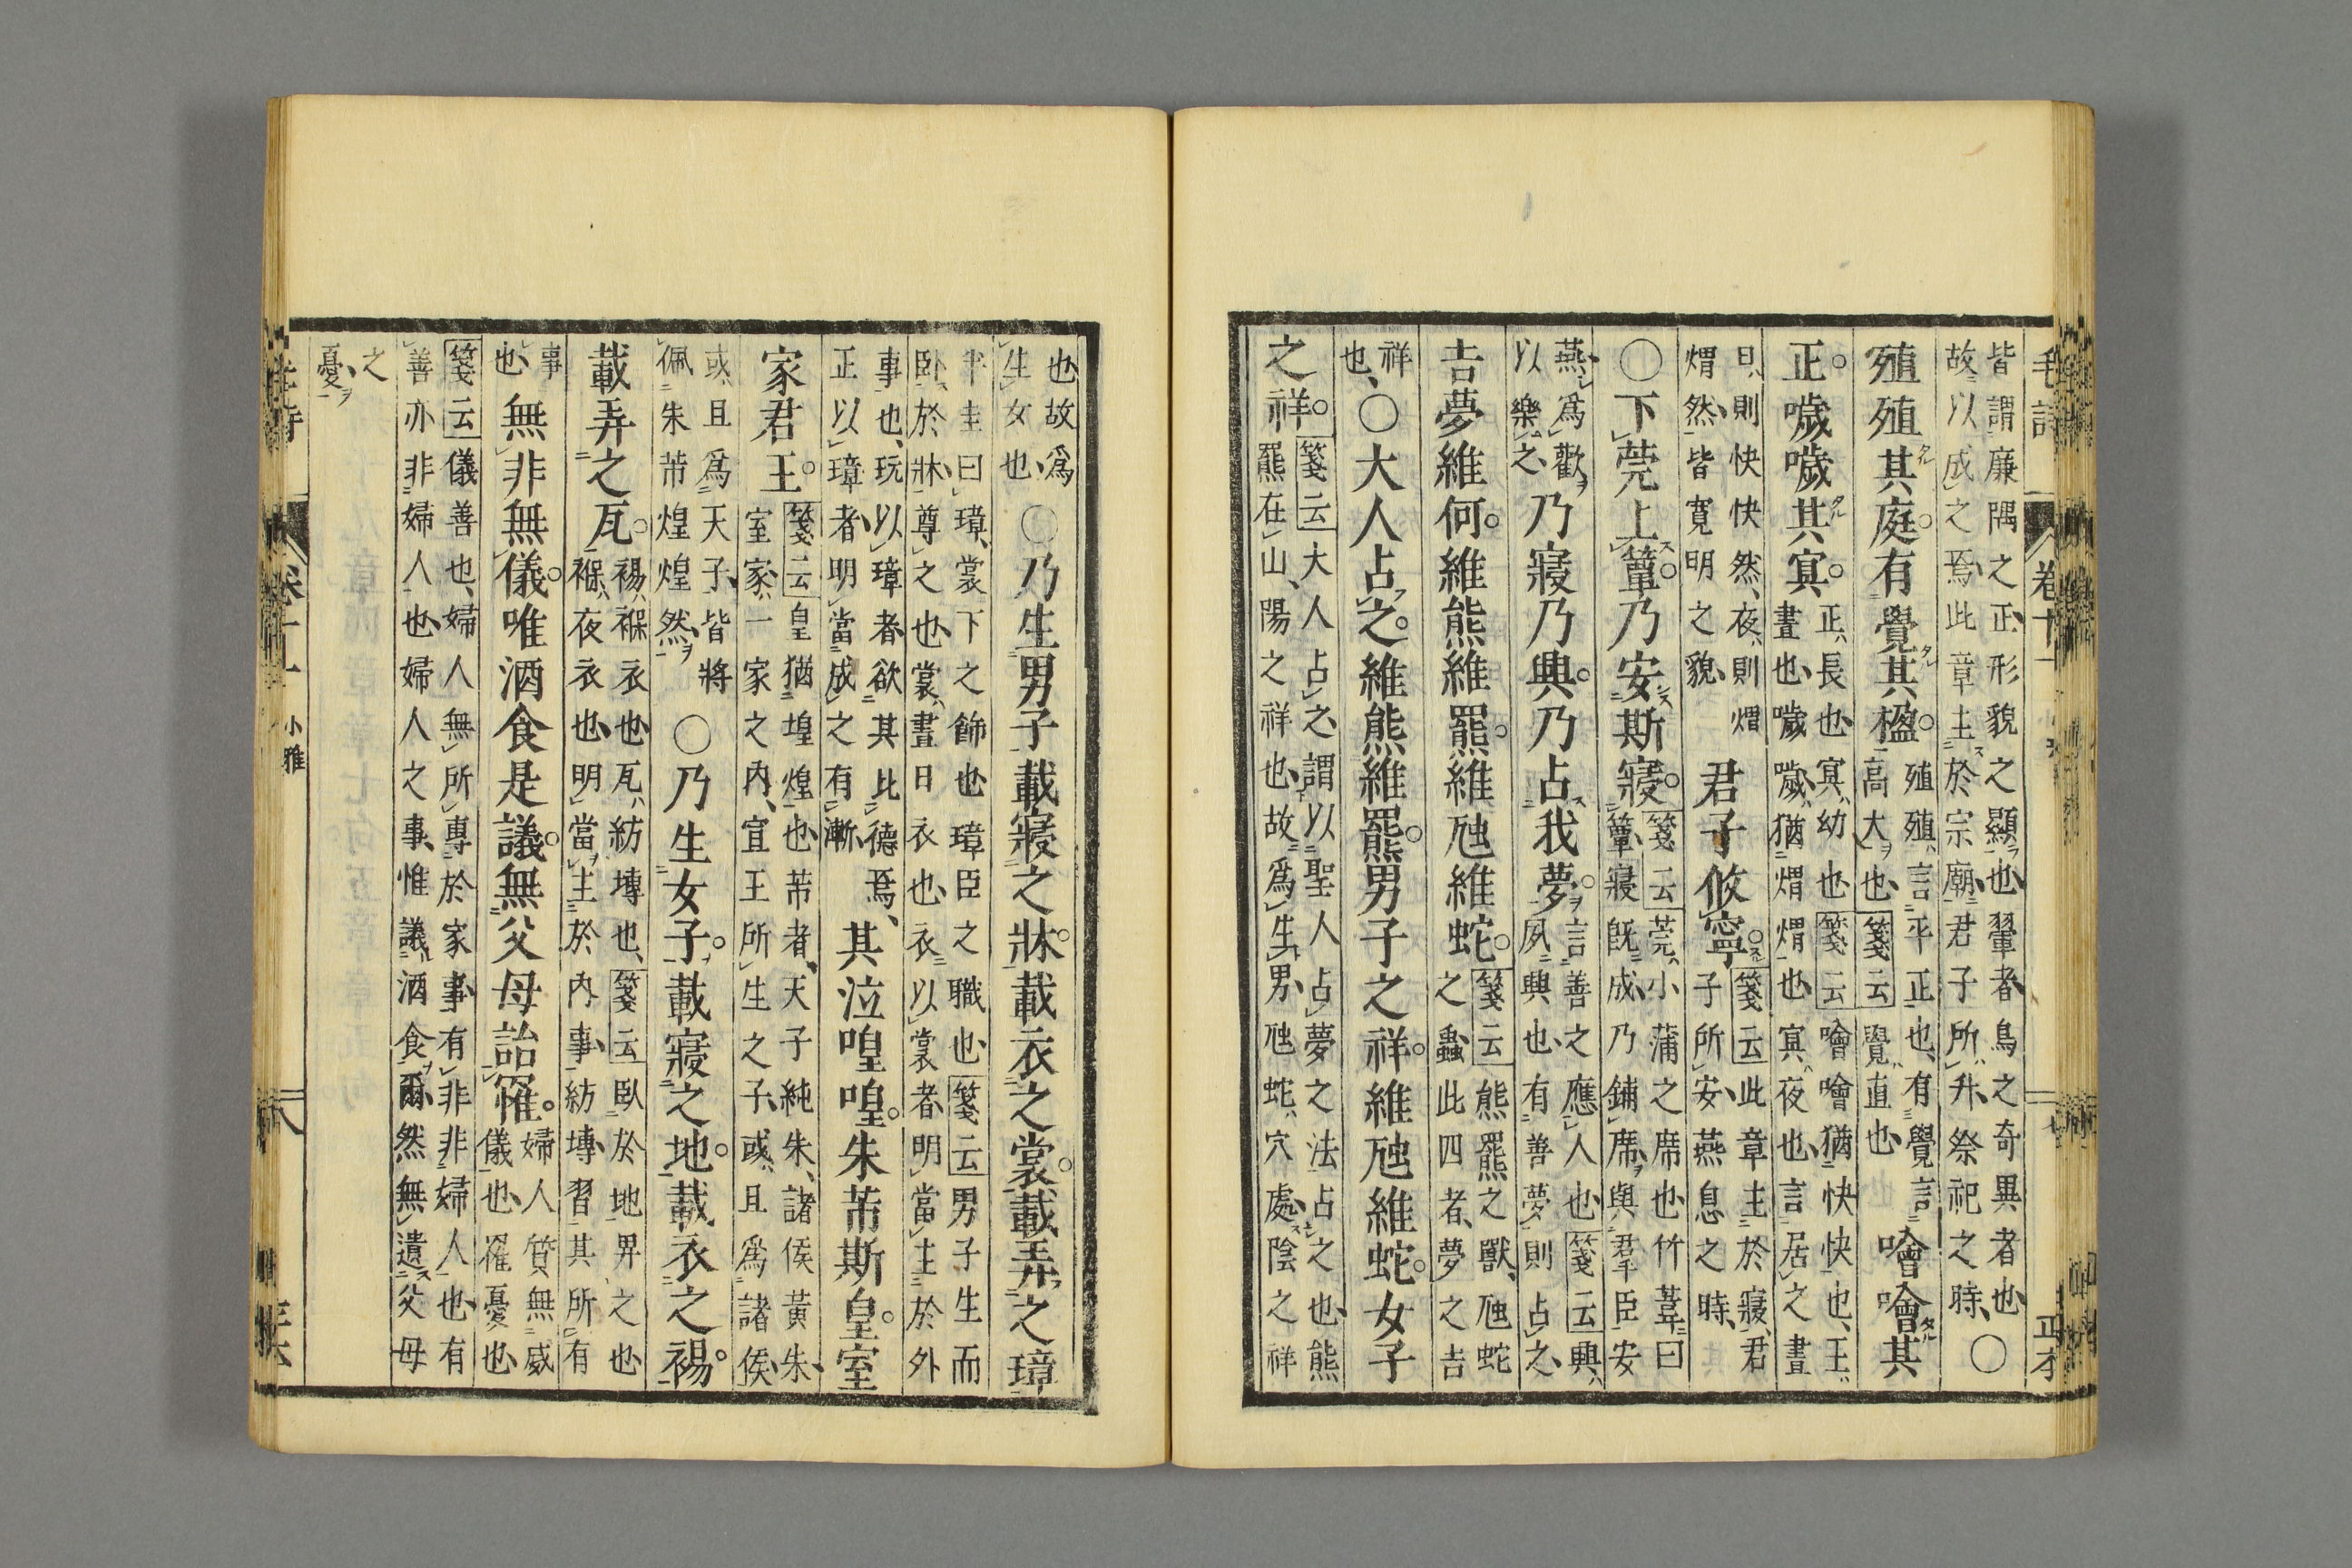 毛詩 卷十一 七
皆謂廉隅之正形貌之顯也翬者鳥之奇異者也故以成之焉此章主於宗廟君子所升祭祀之時○
殖殖其庭有覺其楹殖殖言平正也有覺言高大也箋云覺直也噲噲其
正噦噦其冥正長也冥幼也箋云噲噲猶快快也王晝也噦噦猶煟煟也冥夜也言居之晝
日則快快然夜則煟煟然皆寛明之貌君子攸寧箋云此章主於寢君子所安燕息之時
○下莞上簟乃安斯寢箋云莞小蒲之席也竹葦曰簟寢既成乃鋪席與羣臣安
燕爲歡以樂之乃寢乃興乃占我夢言善之應人也箋云興夙興也有善夢則占之
吉夢維何維熊維羆維虺維蛇箋云熊羆之獸虺蛇之蟲此四者夢之吉
祥也○大人占之維熊維羆男子之祥維虺維蛇女子
之祥箋云大人占之謂以聖人占夢之法占之也熊羆在山陽之祥也故爲生男虺蛇穴處陰之祥
也故爲生女也○乃生男子載寢之牀載衣之裳載弄之璋
半圭曰璋裳下之飾也璋臣之職也箋云男子生而臥於牀尊之也裳晝日衣也衣以裳者明當主於外
事也玩以璋者欲其比德焉正以璋者明當成之有漸其泣喤喤朱芾斯皇室
家君王箋云皇猶堭煌也芾者天子純朱諸侯黃朱室家一家之內宣王所生之子或且爲諸侯
或且爲天子皆將佩朱芾煌煌然○乃生女子載寢之地載衣之裼
載弄之瓦裼褓衣也瓦紡塼也箋云臥於地畀之也褓夜衣也明當主於內事紡塼習其所有
事也無非無儀唯酒食是議無父母詒罹婦人質無威儀也罹憂也
箋云儀善也婦人無所專於家事有非非婦人也有善亦非婦人也婦人之事惟議酒食爾然無遺父母
之憂
卷十一 小雅 八